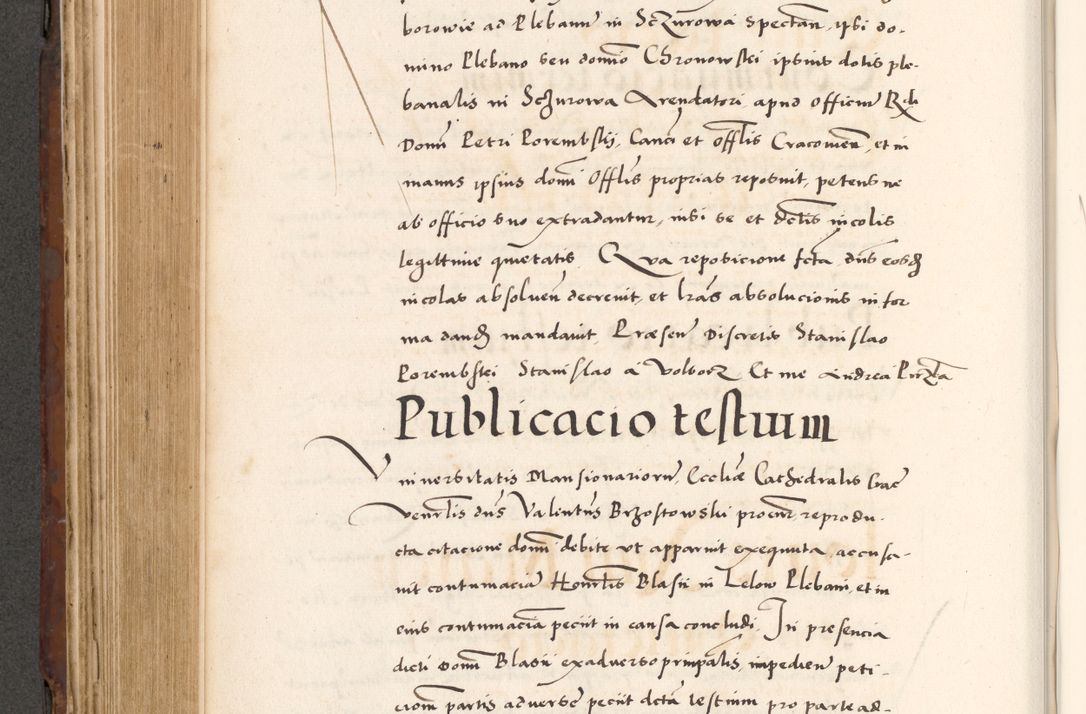 borowie ad Plebanu in Sczurowa spectan. ipsi do-
mino Plebano seu domio Chronowskei ipsius dotis ple-
banalis in Sczurowa Arendatori, apud officiu Rdi
Domi Petri Porembskj, Canci et Offlis Cracovien, et in
manus ipsius domi Offlis proprias reposuit, petens ne
ab officio suo extradantur, nisi se et dictis incolis
legittime quietatis. Qua reposicione fcta, dns eosd
incolas absoluen decrevit, et lras absolucionis in for
ma dand mandavit, Præsen Discretis Stanislao
Porembskei Stanislao a Volborz Et me Andrea
Publicacio testium
Universitatis Mansionarioru, Eccliæ Cathedralis Crac
venrlis dns Valentus Brzostowski procur, reprodu-
cta citacione domi debite ut apparuit exequuta, accusa-
vit contumacia Honrlis Blasii in Lelow Plebani, et in
eius contumacia peciit in causa concludi. In presencia
dicti Domi Blasii ex adverso principalis, impedien peti-
ciom partis adverse peciit dcta testium pro parte ad-